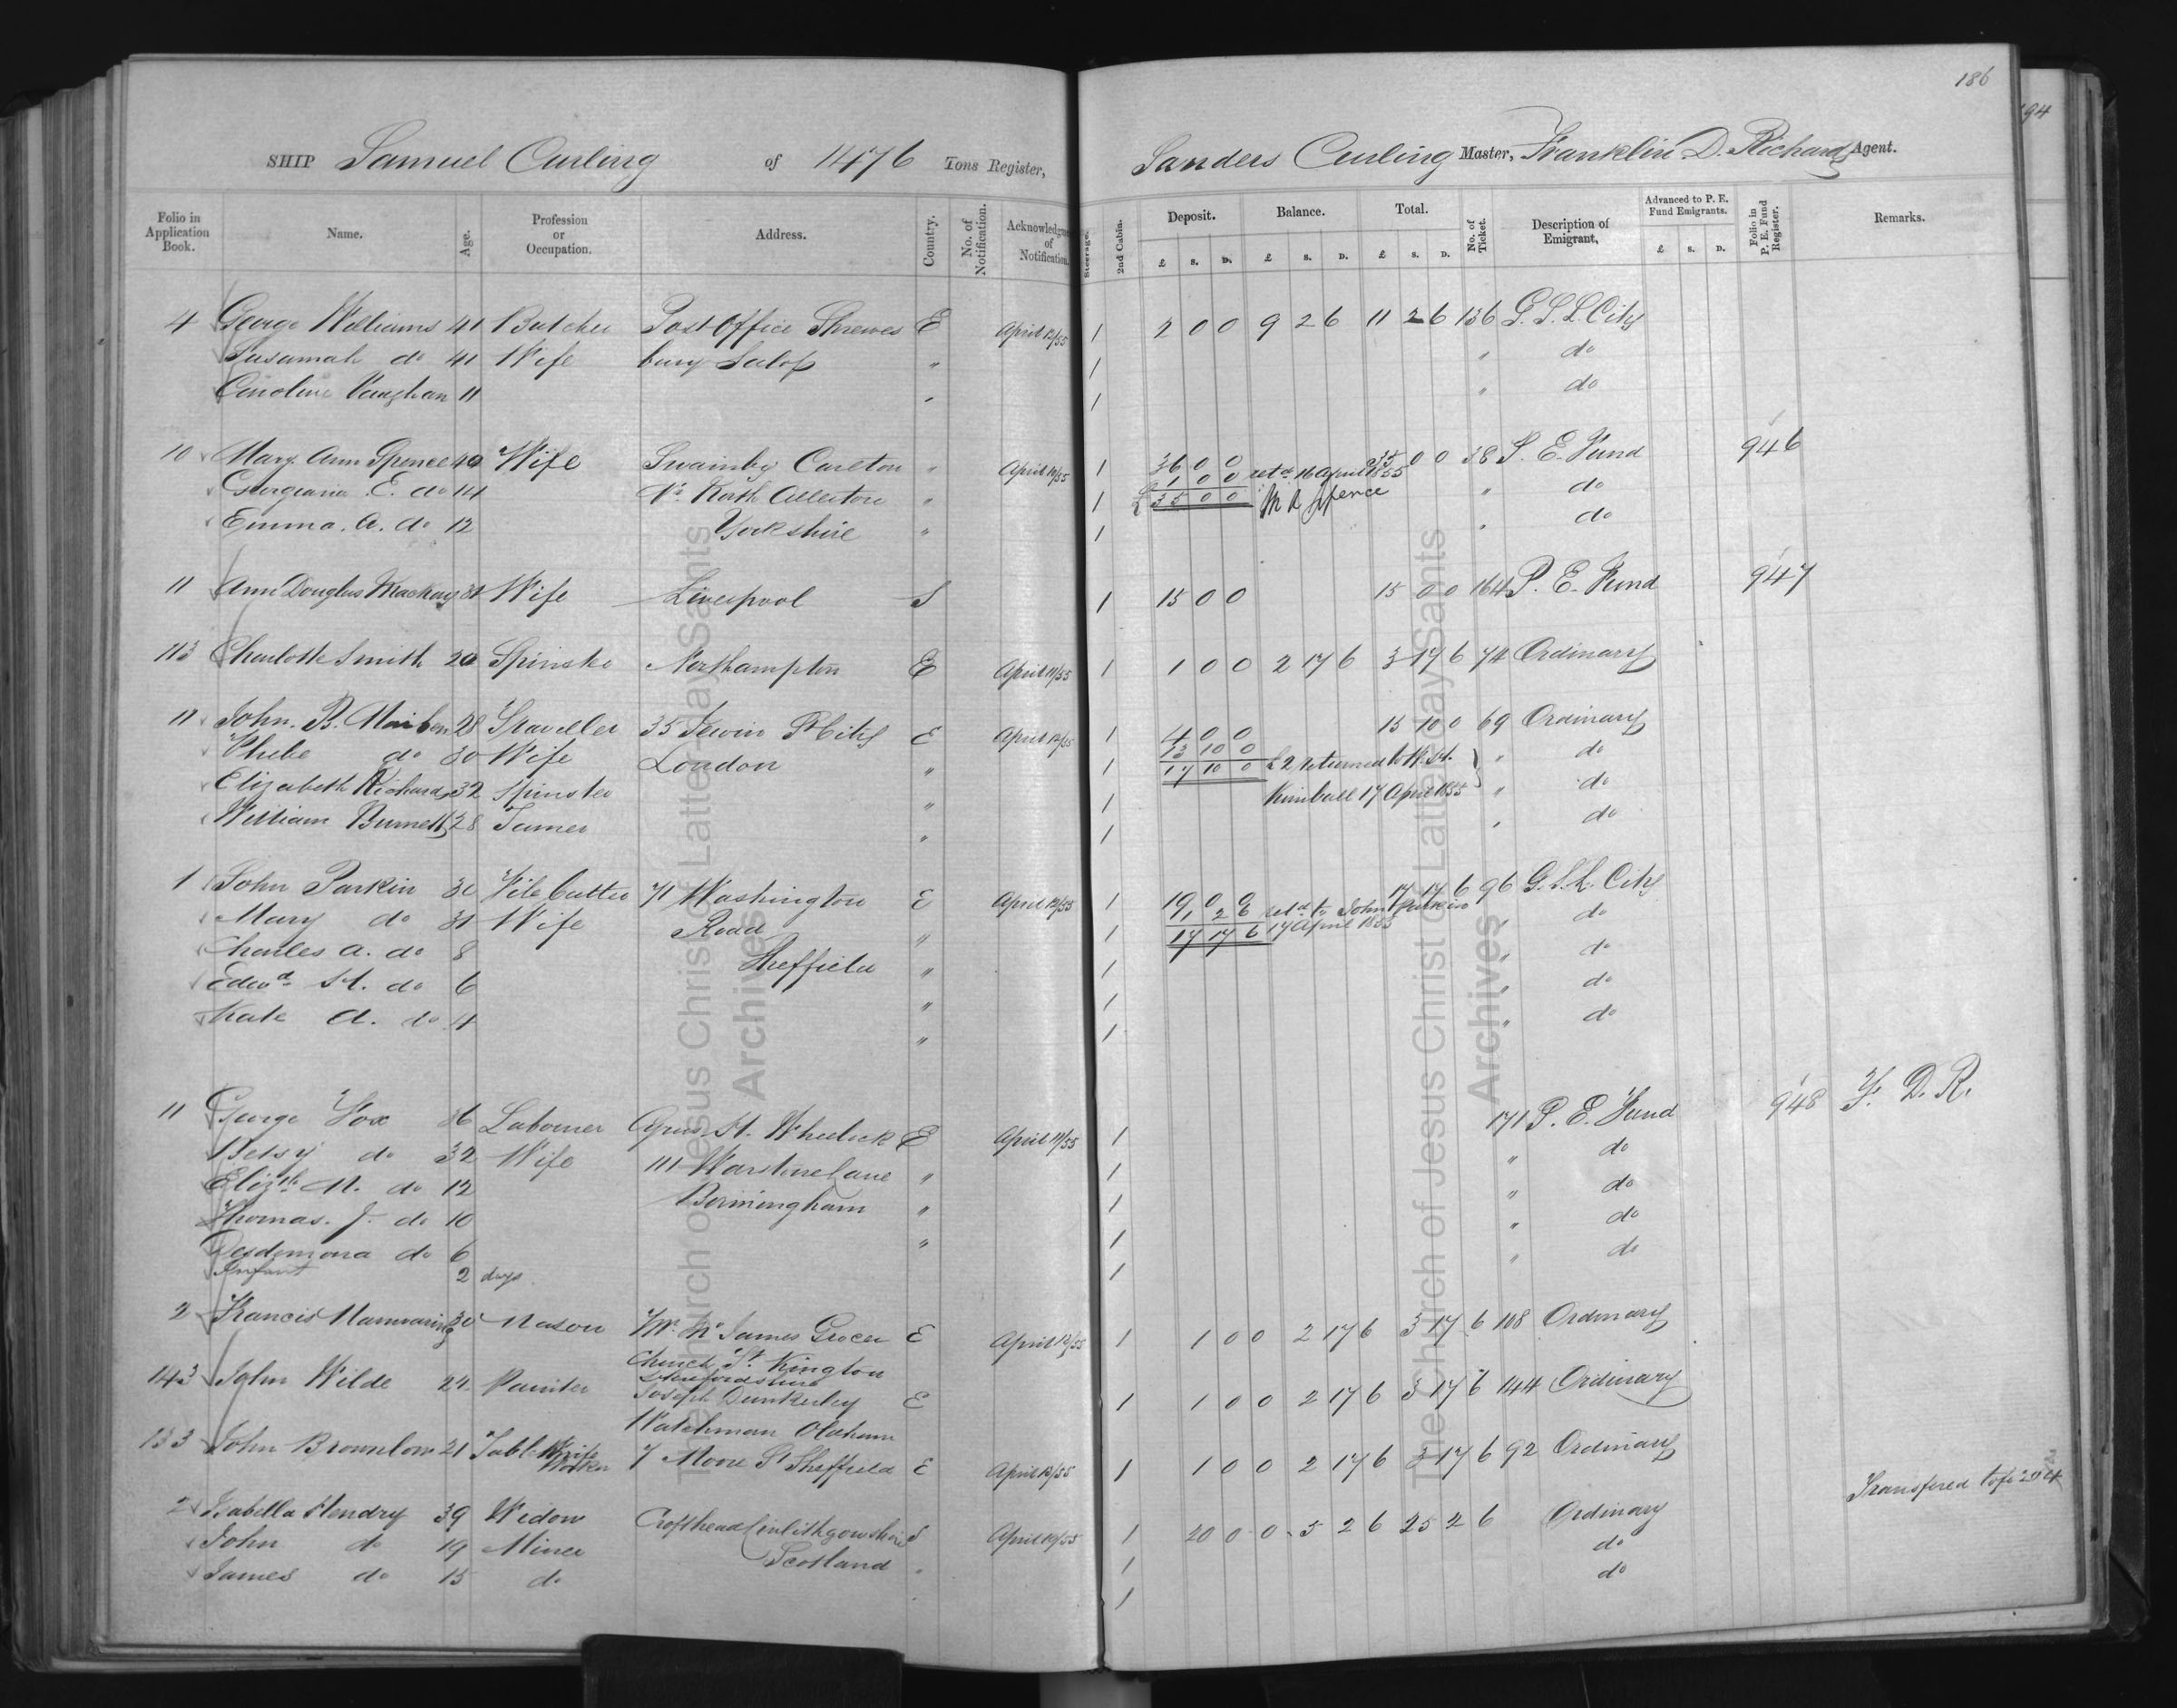 186
94
SHIP Samuel Curling of 1476 Tons Register, Sanders Curling Master, Franklin D. Richards Agent.
Folio in Application Book. Name. Age. Profession or Occupation. Address. Country. No. of Notification. Acknowledgment of Notification. Steerage. 2nd Cabin. Deposit. £ s. D. Balance. £ s. D. Total. £ s. D. No. of Ticket. Description of Emigrant, Advanced to P. E. Fund Emigrants. £ s. D. Folio in P. E. Fund Register. Remarks.
4 George Williams 41 Butcher Post Office Shrews E April 12/55 1 2 0 0 9 2 6 11 2 6 136 G. S. L. City
Susannah do 41 Wife bury Salop " 1 " do
Caroline Vaughan 11 " 1 " do
10 Mary Ann Spence 40 Wife Swainby Carlton " April 10/55 1 36 0 0 35 0 0 38 P. E. Fund 946
1 0 0 retd 16 April 1855
Georgiana E. do 14 Nr North Allerton " 1 £ 35 0 0 M A Spence " do
Emma. A. do 12 Yorkshire " 1 " do
11 Ann Douglas Mackay Wife Liverpool S 1 15 0 0 15 0 0 164 P. E. Fund 947
113 Charlotte Smith 20 Spinster Northampton E April 11/55 1 1 0 0 2 17 6 3 17 6 74 Ordinary
11 John. B. Maiben 28 Traveller 35 Jewin St City E April 12/55 1 4 0 0 15 10 0 69 Ordinary
13 10 0
Phebe do 30 Wife London " 1 17 10 0 £2 returned to W. H. " do
Elizabeth Richards 32 Spinster " 1 Kimball 17 April 1855 " do
William Burnett 28 " 1 " do
1 John Parkin 30 File Cutter 71 Washington E April 12/55 1 19 0 0 17 17 6 96 G. S. L. City
1 2 6 retd to John Parkin
Mary do 31 Wife Road " 1 17 17 6 17 April 1855 " do
Charles A. do 8 Sheffield " 1 " do
Edwd H. do 6 " 1 " do
Kate A. do 4 " 1 " do
11 George Fox 36 Labourer Cyrus H. Wheelock E April 11/55 1 171 P. E. Fund 948 F. D. R.
Betsy do 32 Wife 111 Warstone Lane " 1 " do
Elizth M. do 12 Birmingham " 1 " do
Thomas. J. do 10 " 1 " do
Desdemona do 6 1 " do
Infant 2 days
2 Francis Mainwaring 30 Mason Mr Wm James Grocer E April 12/55 1 1 0 0 2 17 6 3 17 6 108 Ordinary
Church St. Kington
Herefordshire
143 John Wilde 24 Painter Joseph Dunkerley E 1 1 0 0 2 17 6 3 17 6 144 Ordinary
Watchman Oldham
133 John Brownlow 21 Table Knife Worker 7 Moore St Sheffield E April 13/55 1 1 0 0 2 17 6 3 17 6 92 Ordinary
2 Isabella Hendry 39 Widow Crofthead Linlithgowshire S April 10/55 1 20 0 0 5 2 6 25 2 6 Ordinary Transfered to fo 204
John do 19 Miner Scotland " 1 do
James do 15 do 1 do
The Church of Jesus Christ of Latter-day Saints
Archives
The Church of Jesus Christ of Latter-day Saints
Archives